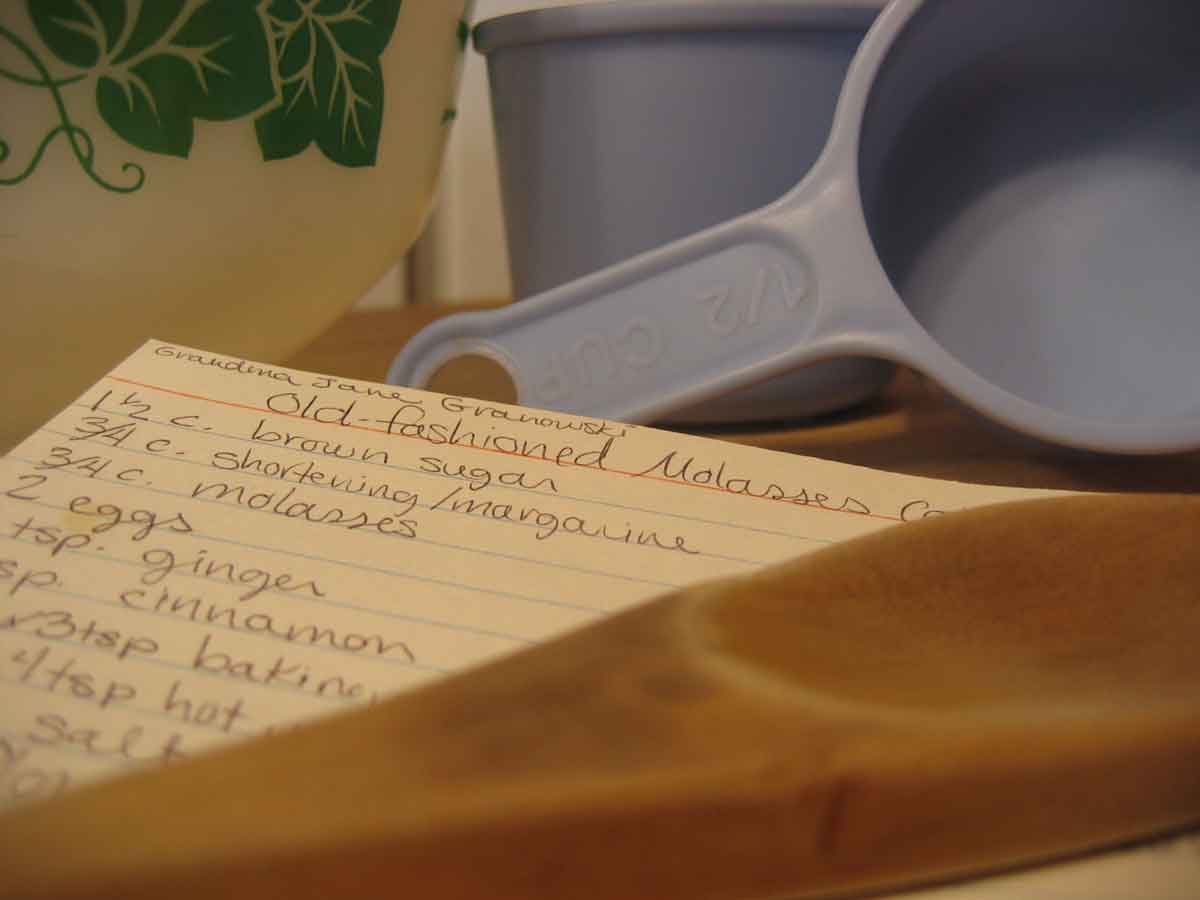 1/2 CUP
Grandma Jane Granowski
Old-fashioned Molasses
1 1/2 c. brown sugar
3/4 c. shortening/margarine
3/4 c. molasses
2 eggs
tsp. ginger
sp. cinnamon
3 tsp baking
4 tsp hot
salt